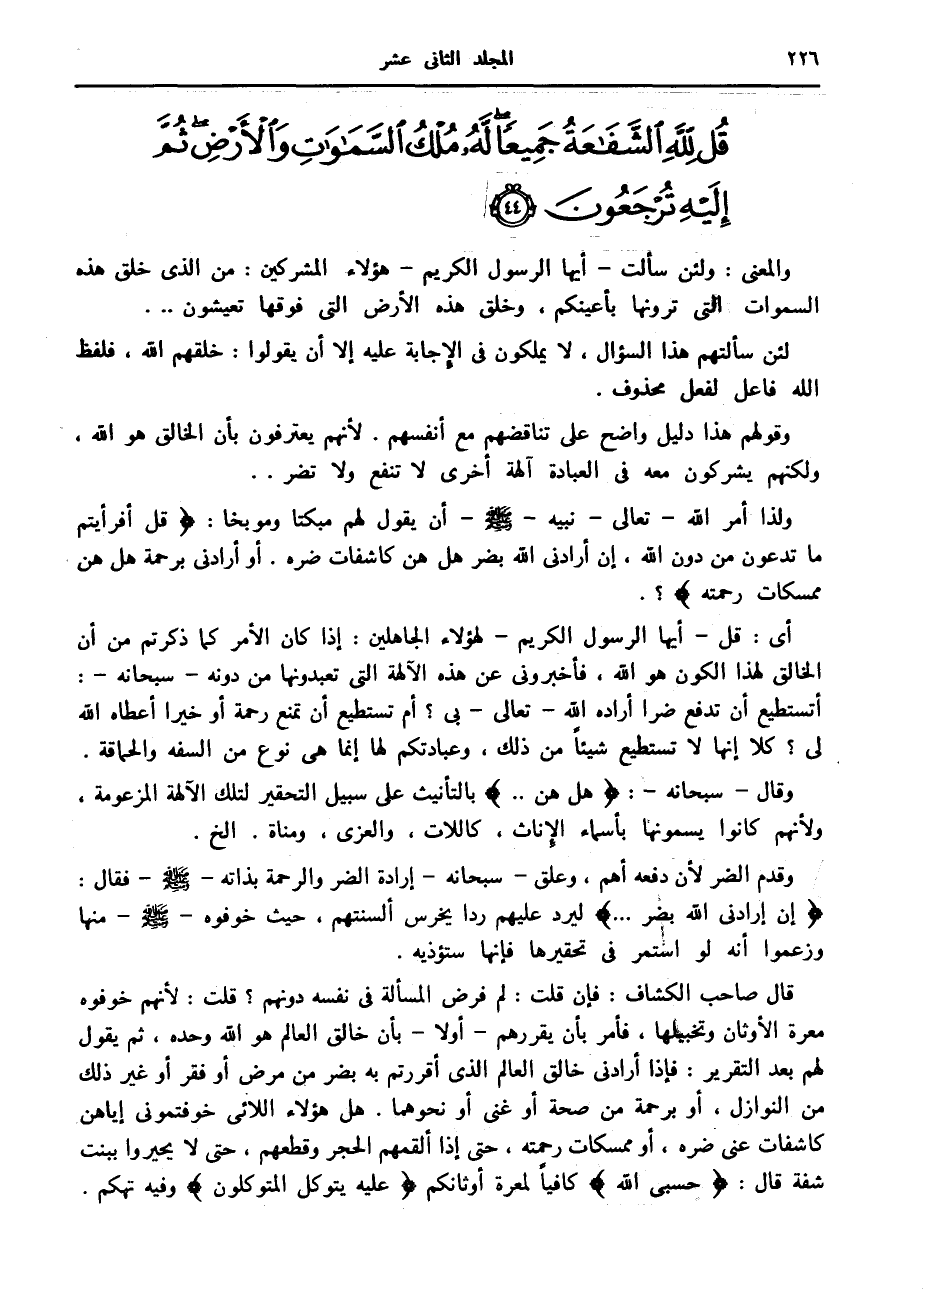 ٢٢٦ المجلد الثانى عشر
قُل لِّلَّهِ ٱلشَّفَٰعَةُ جَمِيعًا ۖ لَّهُۥ مُلْكُ ٱلسَّمَٰوَٰتِ وَٱلْأَرْضِ ۖ ثُمَّ
إِلَيْهِ تُرْجَعُونَ ٤٤
والمعنى : ولئن سألت – أيها الرسول الكريم – هؤلاء المشركين : من الذى خلق هذه
السموات التى ترونها بأعينكم ، وخلق هذه الأرض التى فوقها تعيشون .. .
لئن سألتهم هذا السؤال ، لا يملكون فى الإجابة عليه إلا أن يقولوا : خلقهم الله ، فلفظ
الله فاعل لفعل محذوف .
وقولهم هذا دليل واضح على تناقضهم مع أنفسهم . لأنهم يعترفون بأن الخالق هو الله ،
ولكنهم يشركون معه فى العبادة آلهة أخرى لا تنفع ولا تضر . .
ولذا أمر الله – تعالى – نبيه – ﷺ – أن يقول لهم مبكتا وموبخا : ﴿ قل أفرأيتم
ما تدعون من دون الله ، إن أرادنى الله بضر هل هن كاشفات ضره . أو أرادنى برحمة هل هن
ممسكات رحمته ﴾ ؟ .
أى : قل – أيها الرسول الكريم – لهؤلاء الجاهلين : إذا كان الأمر كما ذكرتم من أن
الخالق لهذا الكون هو الله ، فأخبرونى عن هذه الآلهة التى تعبدونها من دونه – سبحانه – :
أتستطيع أن تدفع ضرا أراده الله – تعالى – بى ؟ أم تستطيع أن تمنع رحمة أو خيرا أعطاه الله
لى ؟ كلا إنها لا تستطيع شيئاً من ذلك ، وعبادتكم لها إنما هى نوع من السفه والحماقة .
وقال – سبحانه – : ﴿ هل هن .. ﴾ بالتأنيث على سبيل التحقير لتلك الآلهة المزعومة ،
ولأنهم كانوا يسمونها بأسماء الإناث ، كاللات ، والعزى ، ومناة . الخ .
وقدم الضر لأن دفعه أهم ، وعلق – سبحانه – إرادة الضر والرحمة بذاته – ﷺ – فقال :
﴿ إن إرادنى الله بضر ...﴾ ليرد عليهم ردا يخرس ألسنتهم ، حيث خوفوه – ﷺ – منها
وزعموا أنه لو استمر فى تحقيرها فإنها ستؤذيه .
قال صاحب الكشاف : فإن قلت : لم فرض المسألة فى نفسه دونهم ؟ قلت : لأنهم خوفوه
معرة الأوثان وتخبيلها ، فأمر بأن يقررهم – أولا – بأن خالق العالم هو الله وحده ، ثم يقول
لهم بعد التقرير : فإذا أرادنى خالق العالم الذى أقررتم به بضر من مرض أو فقر أو غير ذلك
من النوازل ، أو برحمة من صحة أو غنى أو نحوهما . هل هؤلاء اللائى خوفتمونى إياهن
كاشفات عنى ضره ، أو ممسكات رحمته ، حتى إذا ألقمهم الحجر وقطعهم ، حتى لا يحيروا ببنت
شفة قال : ﴿ حسبى الله ﴾ كافياً لمعرة أوثانكم ﴿ عليه يتوكل المتوكلون ﴾ وفيه تهكم .